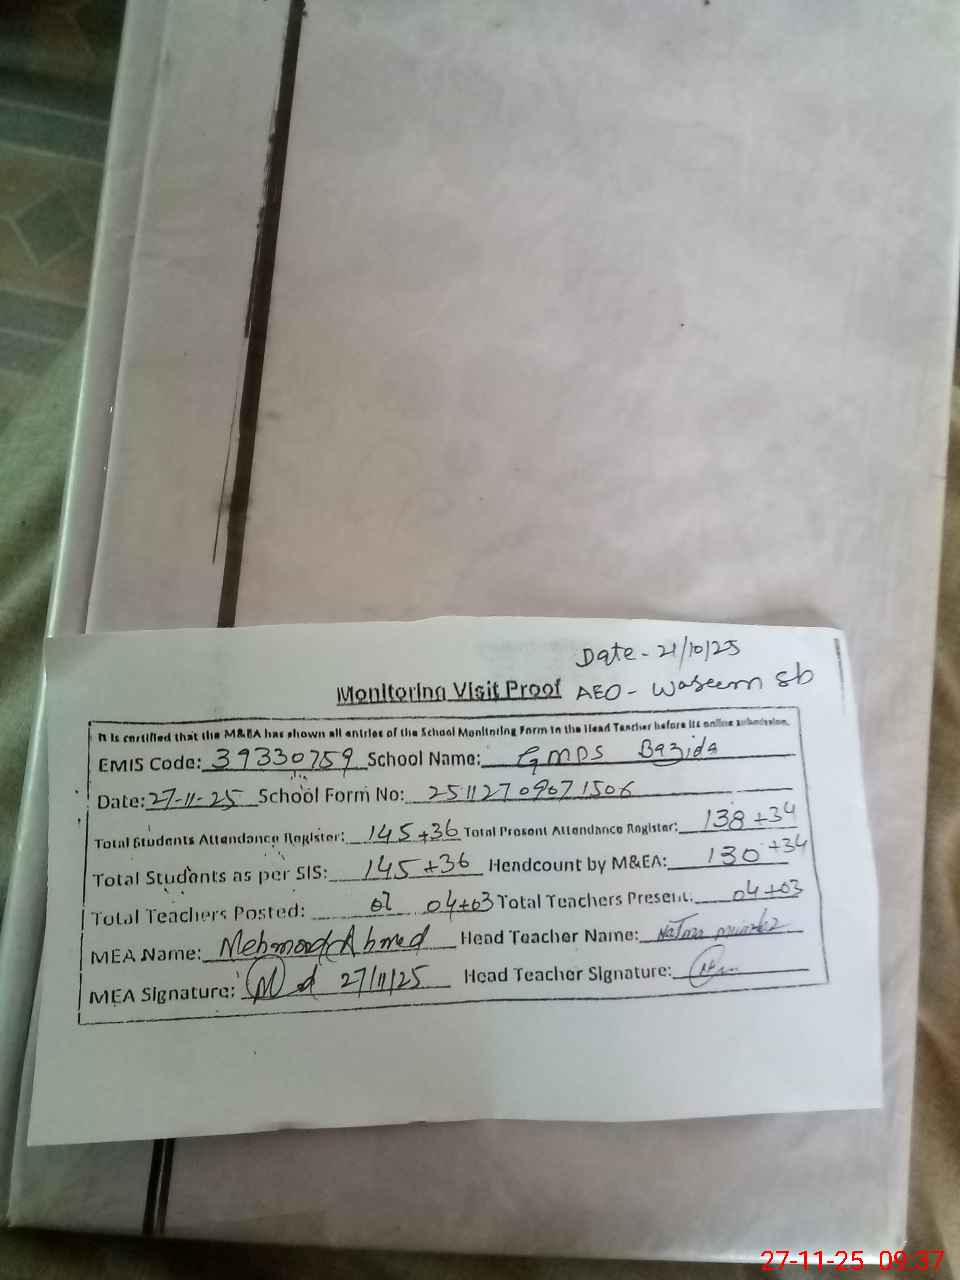 Date - 21/10/25
Monitoring Visit Proof AEO - Waseem sb
It is certified that the M&EA has shown all entries of the School Monitoring Form to the Head Teacher before its online submission.
EMIS Code: 39330759 School Name: GMPS Bazida
Date: 27-11-25 School Form No: 25112709071506
Total Students Attendance Register: 145+36 Total Present Attendance Register: 138+34
Total Students as per SIS: 145+36 Headcount by M&EA: 130+34
Total Teachers Posted: 04+03 Total Teachers Present: 04+03
MEA Name: Mehmood Ahmed Head Teacher Name:
MEA Signature: 27/11/25 Head Teacher Signature:
27-11-25 09:37